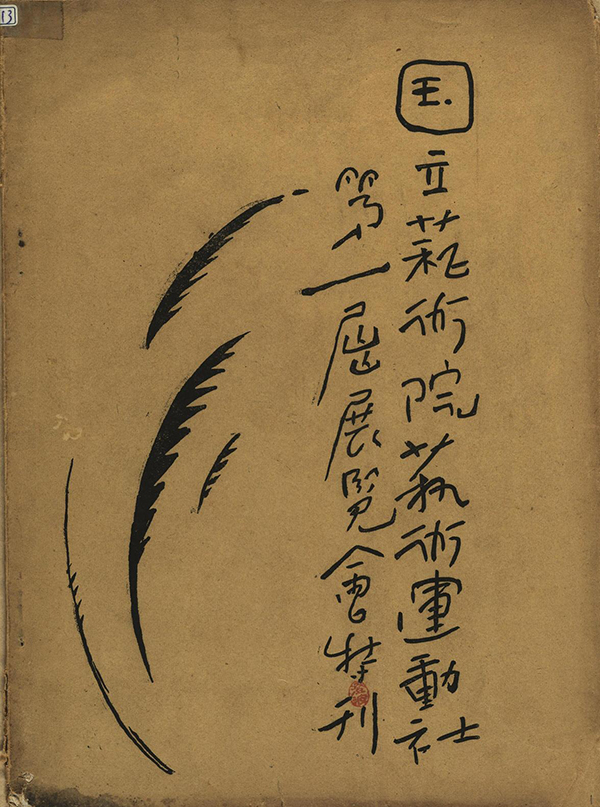 国立藝術院藝術運動社
第一屆展覧會特刊
13